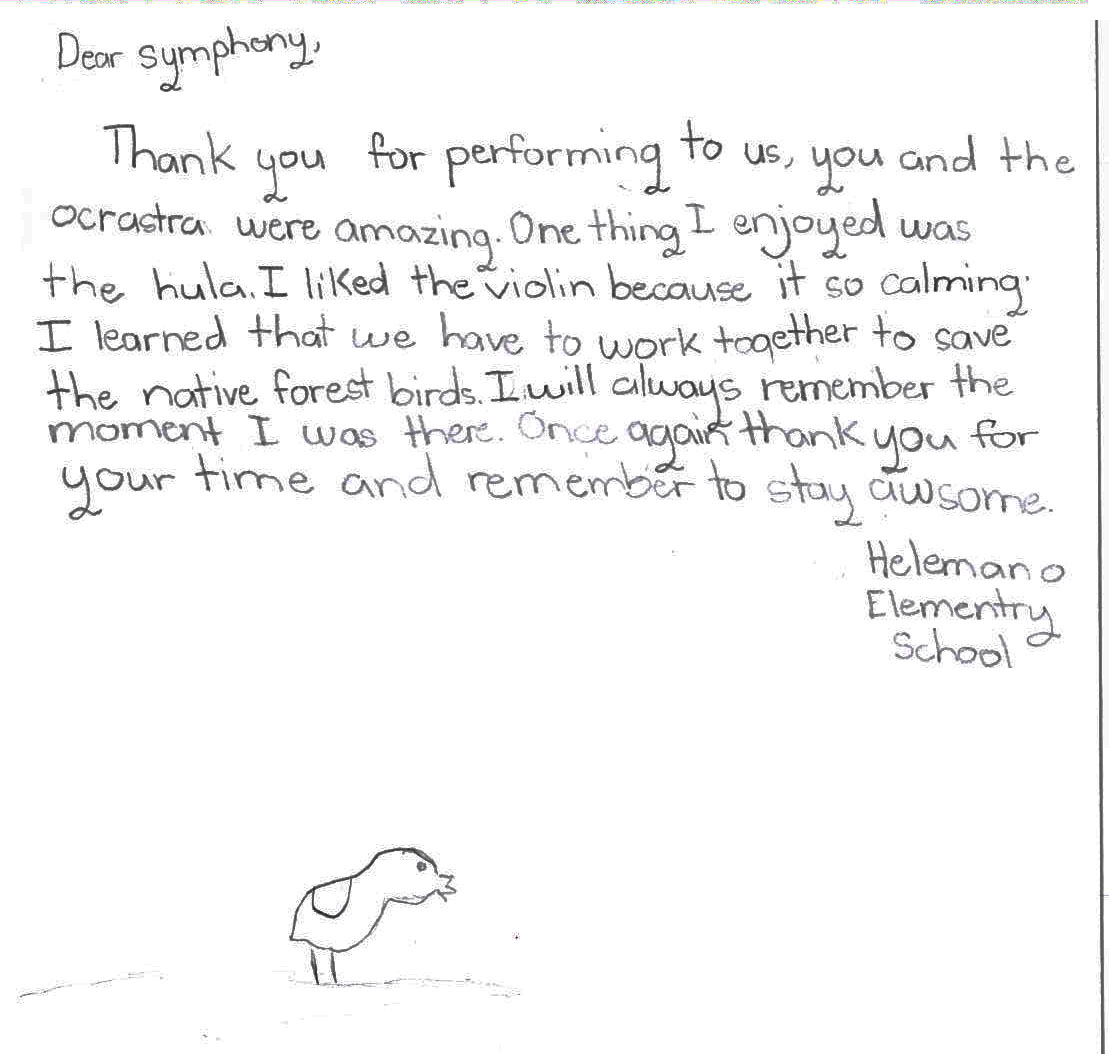 Dear symphony,
Thank you for performing to us, you and the
ocrastra were amazing. One thing I enjoyed was
the hula. I liked the violin because it so calming.
I learned that we have to work together to save
the native forest birds. I will always remember the
moment I was there. Once again thank you for
your time and remember to stay awsome.
Helemano
Elementry
School